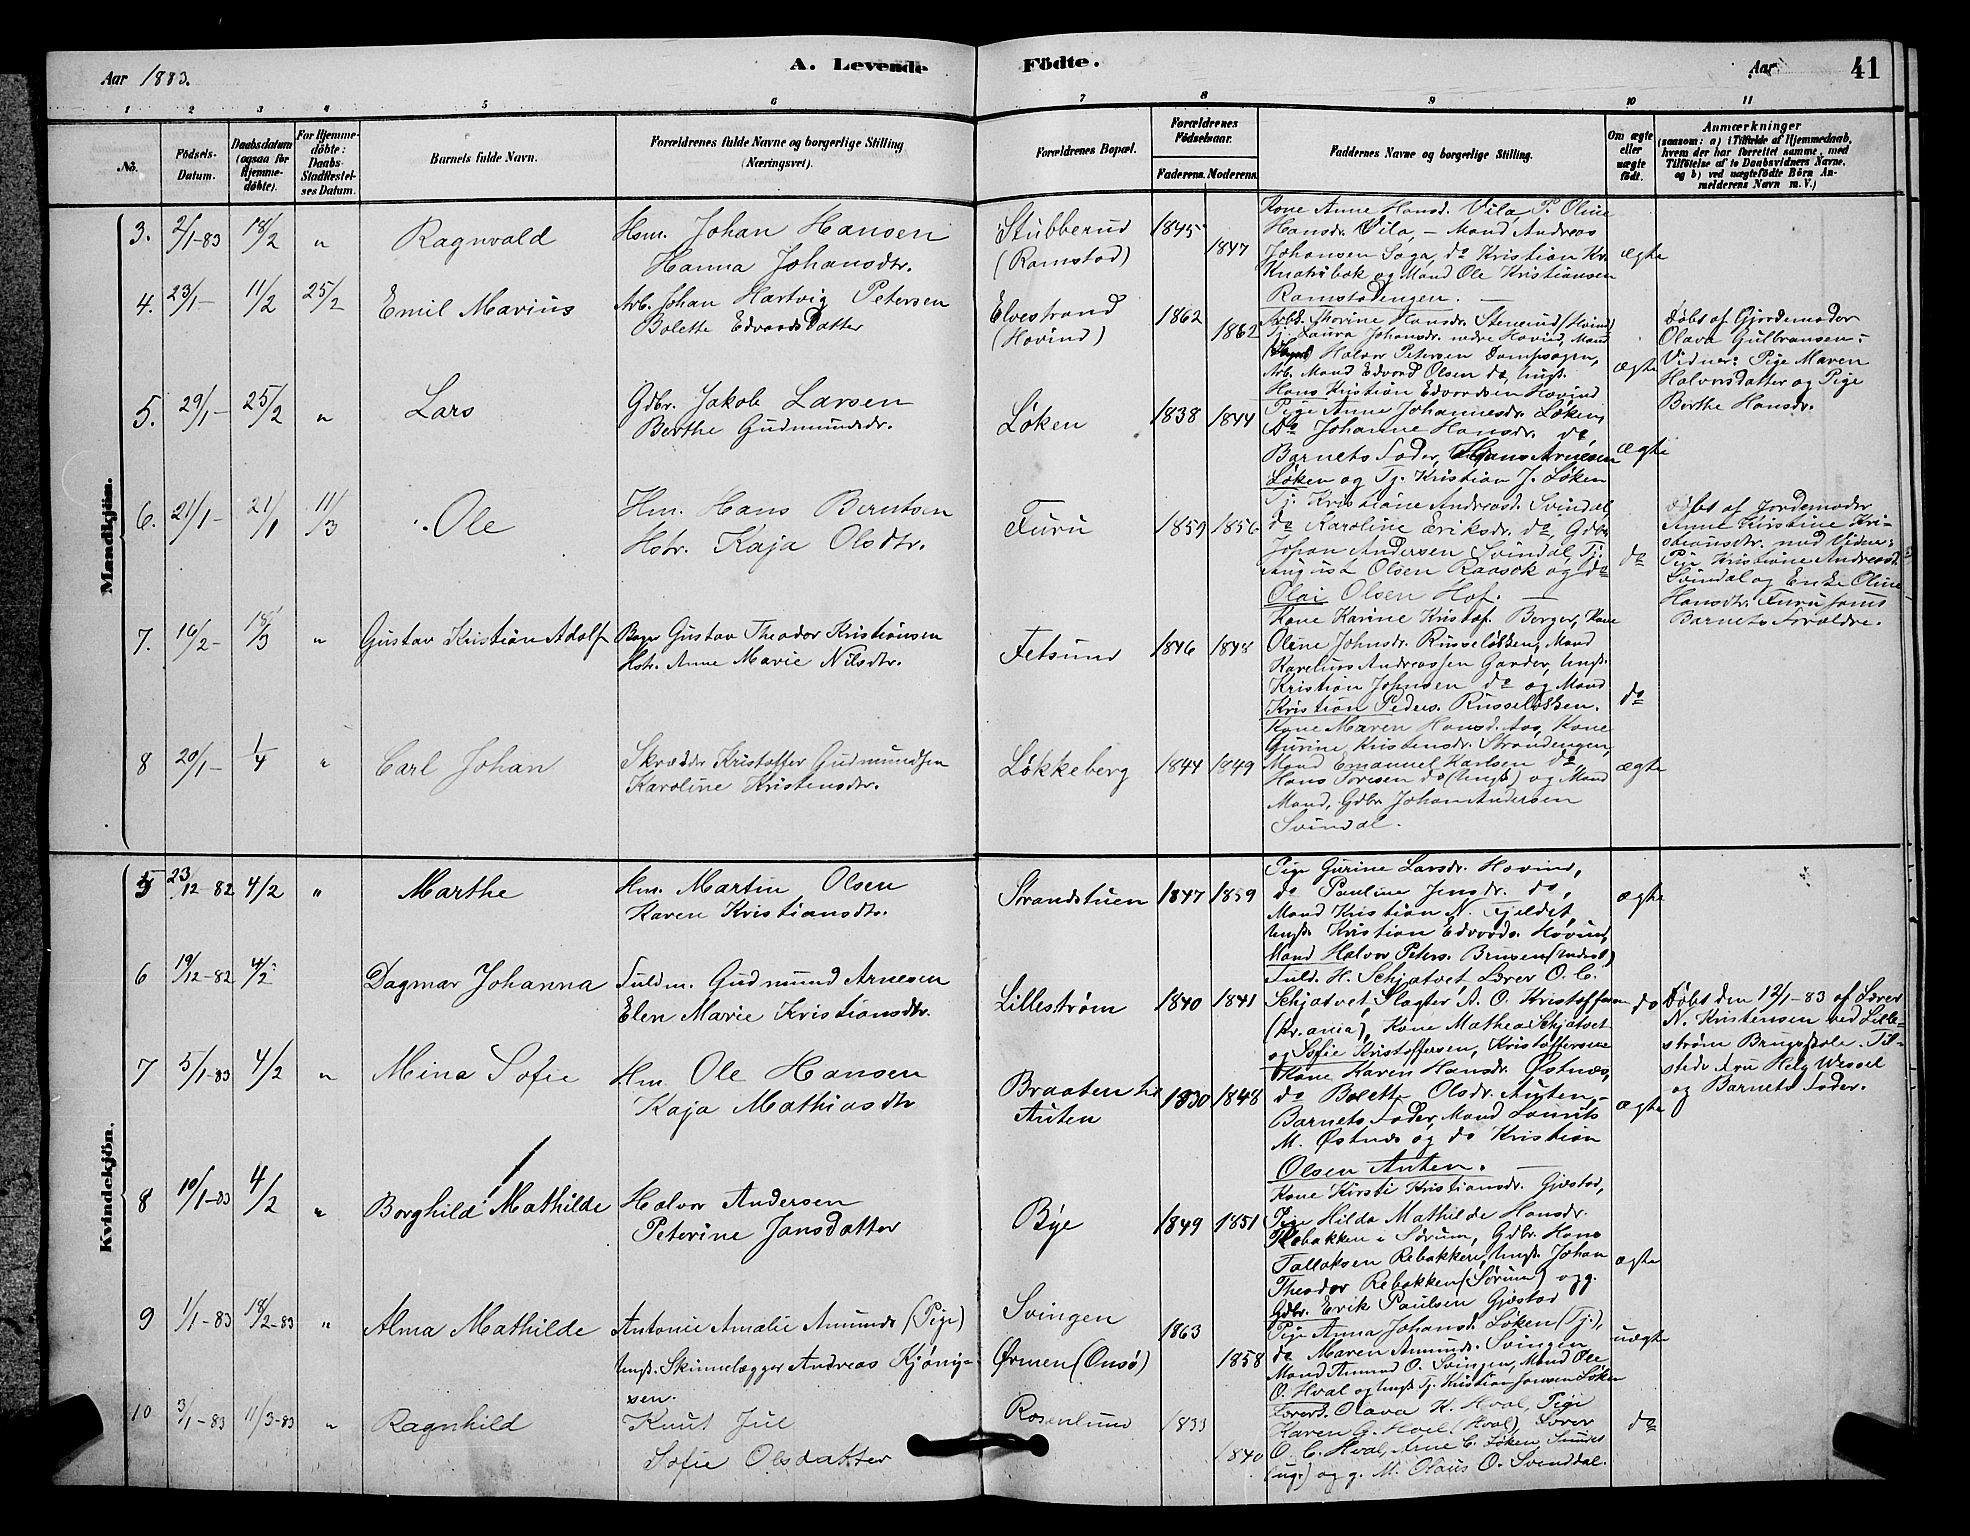 Aar 1883.
A. Levende Födte.
Aar
41
1 2 3 4 5 6 7 8 9 10 11
No.
Födsels-
Datum.
Daabsdatum
(ogsaa for
Hjemme-
döbte).
For Hjemme-
döbte:
Daabs-
Stadfæstel-
ses Datum.
Barnets fulde Navn.
Forældrenes fulde Navne og borgerlige Stilling
(Næringsvei).
Forældrenes Bopæl.
Forældrenes
Födselsaar.
Faderens. Moderens.
Faddernes Navne og borgerlige Stilling.
Om ægte
eller
uægte
født.
Anmærkninger
(saasom: a) i Tilfælde af Hjemmedaab,
hvem der har forrettet samme, med
Tilföielse af to Daabsvidners Navne,
og b) ved uægtefödte Börn An-
melderens Navn m. V.)
Mandkjön.
3. 2/1-83 18/2 " Ragnvald
Hsm. Johan Hansen
Hanna Johansdtr.
Stubberud
(Ramstad)
1845 1847
Kone Anne Hansd. Vila, P. Oline
Hansdr. Vila, – Mand Andreas
Johansen Saga, do Kristian Kr.
Knatribak og Mand Ole Kristiansen
Ramstadengen. –
ægte
4. 23/1- 11/2 25/2 Emil Marius
Arb. Johan Hartvig Petersen
Bolette EdvardsDatter
Elvestrand
(Hovind)
1862 1862
Hansdr. Stenerud (Hovind)
Tj. Laura Johansdr. nedre Hovind, Mand
Halvor Petersen Dampsagen,
Arb. Mand Edvard Olsen do, Ungk.
Hans Kristian Edvardsen Hovind
ægte
Døbt af Gjordemoder
Olava Gulbransen.
Vidner: Pige Maren
Halvorsdatter og Pige
Berthe Hansdr.
5. 29/1- 25/2 " Lars
Gdbr. Jakob Larsen
Berthe Gudmundsdr.
Løken
1838 1844
Pige Anne Johannesdr. Løken,
Do Johanne Hansdr. do,
Barnets Fader, Hans Arnesen
Løken og Tj. Kristian J. Løken
ægte
6. 21/1- 21/1 11/3 Ole
Hm. Hans Berntsen
Hstr. Kaja Olsdtr.
Furu
1859 1856
Tj. Kristiane Andreasd. Svindal,
do Karoline Eriksdr. do, Gdbr.
Johan Andersen Svindal, Tj.
August Olsen Raasok og do
Olai Olsen Hof. –
do
Døbt af Jordemoder
Anne Kristine Kri-
stiansdtr. med Vidner:
Pige Kristiane Andreasd.
Svindal og Enke Oline
Hansdtr. Furu samt
Barnets Forældre.
7. 16/2- 18/3 " Gustav Kristian Adolf
Bager Gustav Theodor Kristiansen
Hstr. Anne Marie Nilsdtr.
Fetsund
1846 1848
Kone Karine Kristof. Berger, Kone
Oline Johnsdr. Russeløkken, Mand
Karelius Andreassen Garder, Ungk.
Kristian Johnsen do og Mand
Kristian Peders. Russeløkken.
do
8 20/1- 1/4 " Carl Johan
Skrædder Kristoffer Gudmundsen
Karoline Kristensdtr.
Løkkeberg
1844 1849
Kone Maren Hansd. Aas, Kone
Gurine Kristensdr. Strandengen,
Mand Emanuel Karlsen do,
Hans Toresen do (Ungk) og Mand
Mand, Gdbr. Johan Andersen
Svindal.
ægte
Kvindekjön.
5 23/12-82 4/2 " Marthe
Hm. Martin Olsen
Karen Kristiansdtr.
Strandstuen
1847 1859
Pige Gurine Larsdr. Hovind,
do Pauline Jensdr. do,
Mand Kristian N. Fjeldet,
Ungk. Kristian Edvards. Hovind,
Mand Halvor Peters. Brusen
ægte
6 19/12-82 4/2 Dagmar Johanna
Fuldm. Gudmund Arnesen
Elen Marie Kristiansdtr.
Lillestrøm
1840 1841
Fuld. H. Schjatvet, Lærer O. C.
Schjatvet, Slagter A. O. Kristoffersen
(Kr.ania), Kone Mathea Schjatvet
og Sofie Kristoffersen, Kristoffersene
do
Døbt den 12/1-83 af Lærer
N. Kristensen ved Lille-
strøm Brugsskole. Til-
stede Fru Helg Wessel
og Barnets Fader.
7 5/1-83 4/2 " Mina Sofie
Hm. Ole Hansen
Kaja Mathiasdtr
Braaten
Auten
1830 1848
Kone Karen Hansdr. Østnæs,
do Bolette Olsdr. Auten, –
Barnets Fader, Mand Laurits
M. Østnæs og do Kristian
Olsen Auten. –
ægte
8 10/1-83 4/2 " Borghild Mathilde
Halvor Andersen
Peterine JansDatter
Bye
1849 1851
Kone Kirsti Kristiansdr. Gjæstad,
Pige Hilda Mathilde Hansdr.
Rebakken i Sørum, Gdbr. Hans
Tollaksen Rebakken, Ungk. Johan
Theodor Rebakken (Sørum) og g.
Gdbr. Erik Paulsen Gjæstad
ægte
9 1/1-83 18/2-83 " Alma Mathilde
Antonie Amalie Amunds (Pige)
Ungk. Skinnelægger Andreas Kjønig-
sen.
Svingen
Ørmen (Onsø)
1863 1858
Pige Anna Johansd. Løken (Tj.),
do Maren Amunds. Svingen
Mand Amund O. Svingen, Mand Ole
O. Hval og Ungk. Tj. Kristian Jensen Løken
uægte
10 3/1-83 11/3-83 " Ragnhild
Knut Jul
Sofie Olsdatter
Rosenlund
1833 1840
Olava K. Hval, Pige
Karen G. Hvel (Hval), Lærer
O. C. Hval, Arne C. Løken,
(ug.) og g. M. Olaus O. Svinddal.
do